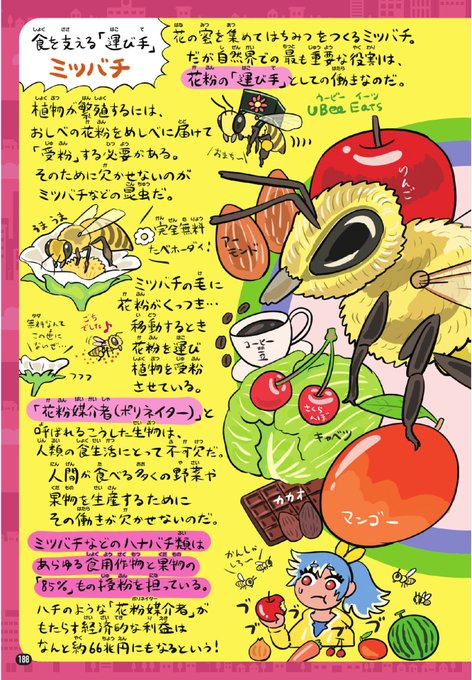 食を支える「運び手」
ミツバチ
花の蜜を集めてはちみつをつくるミツバチ。
だが自然界での最も重要な役割は、
花粉の「運び手」としての働きなのだ。
ウービー イーツ
UBee Eats
おまちー
植物が繁殖するには、
おしべの花粉をめしべに届けて
「受粉」する必要がある。
そのために欠かせないのが
ミツバチなどの昆虫だ。
りんご
アーモンド
うまうま
完全無料
たべホーダイ!
ミツバチの毛に
花粉がくっつき…
移動するとき
花粉を運び
植物を受粉
させている。
ごちでした♪
無料なんて
この世に
いないぜ…
フフフ
コーヒー豆
さくらんぼ
キャベツ
カカオ
マンゴー
「花粉媒介者(ポリネイター)」と
呼ばれるこうした生物は、
人類の食生活にとって不可欠だ。
人間が食べる多くの野菜や
果物を生産するために
その働きが欠かせないのだ。
ミツバチなどのハナバチ類は
あらゆる食用作物と果物の
「85%」もの授粉を担っている。
ハチのような「花粉媒介者」が
ポリネイター
もたらす経済的な利益は
なんと約66兆円にもなるという!
かんしゃしろー!
ブブブ
188